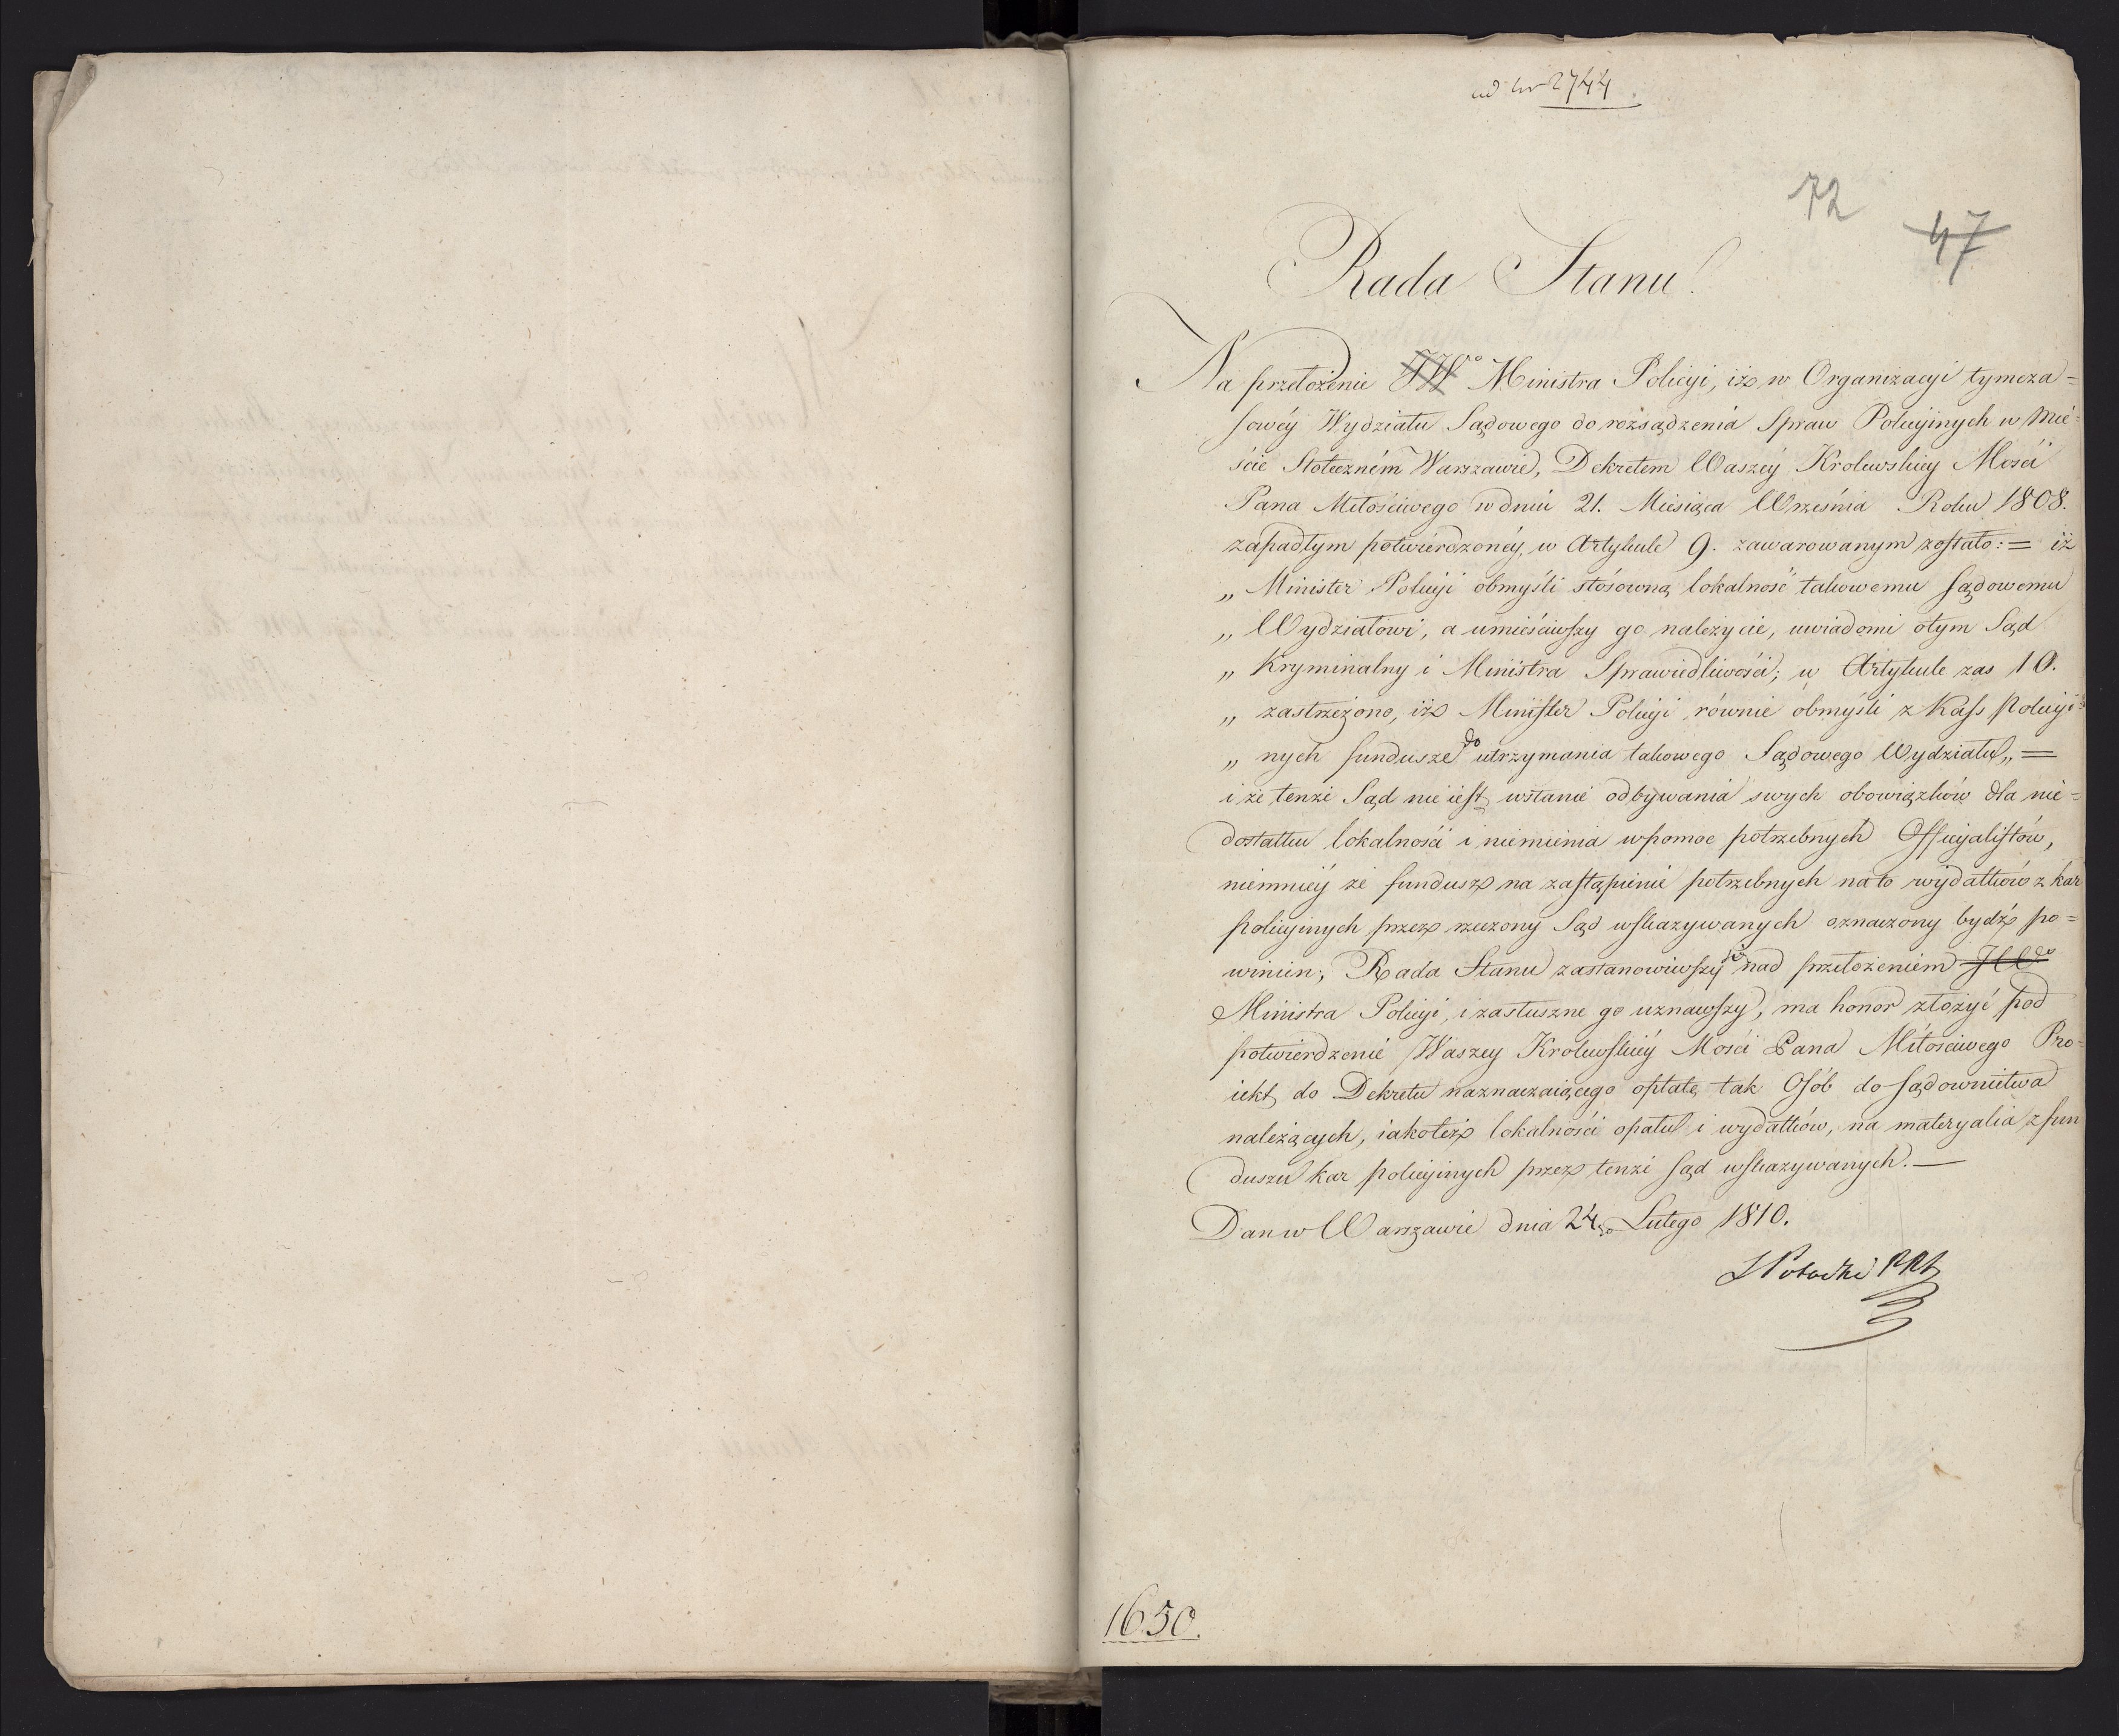 ad Nr 2744.
72
47
Rada Stanu.
Na przełożenie JWo Ministra Policyi, iż w Organizacyi tymcza=
sowéy Wydziału Sądowego do rozsądzenia Spraw Policyinych w Mie=
ście Stołeczném Warszawie, Dekretem Waszéy Krolewskiey Mości
Pana Miłościwego w dniu 21. Miesiąca Września Roku 1808.
zapadłym potwierdzonéy, w Artykule 9. zawarowanym zostało: = iż
„ Minister Policyi obmyśli stósowną lokalność takowemu sądowemu
„ Wydziałowi, a umieściwszy go należycie, uwiadomi otym Sąd
„ Kryminalny i Ministra Sprawiedliwości; w Artykule zas 10.
„ zastrzeżono, iż Minister Policyi równie obmyśli z Kass Policyi=
„ nych fundusze do utrzymania takowego Sądowego Wydziału„ =
i że tenże Sąd nie iest wstanie odbywania swych obowiązków dla nie=
dostatku lokalności i niemienia wpomoc potrzebnych Officyalistów,
niemniéy że fundusz na zastąpienie potrzebnych na to wydatków z kar
policyinych przez rzeczony Sąd wskazywanych oznaczony bydź po=
winien; Rada Stanu zastanowiwszy się nad przełożeniem JWo
Ministra Policyi, i za słuszne go uznawszy, ma honor złożyć pod
potwierdzenie Waszey Krolewskiéy Mości Pana Miłościwego Pro=
iekt do Dekretu naznaczaiącego opłatę tak Osób do sądownictwa
należących, iakoteż lokalności opału i wydatków, na materyalia z fun
duszu kar policyinych przez tenże sąd wskazywanych. —
Dan w Warszawie dnia 24go Lutego 1810.
S Potocki PRS
1650.